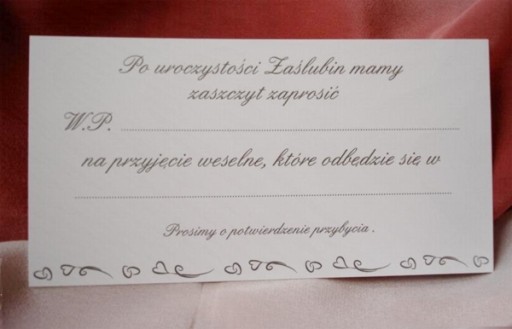 Po uroczystości Zaślubin mamy
zaszczyt zaprosić
W.P.
na przyjęcie weselne, które odbędzie się w
Prosimy o potwierdzenie przybycia .